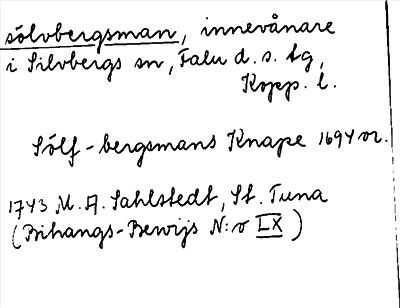 sölvbergsman, innevånare
i Silvbergs sn, Falu d. s. tg,
Kopp. l.
Sölf-bergsmans Knape 1694 or.
1743 M. A. Sahlstedt, St. Tuna
(Bihangs-Bewijs N:o LX)